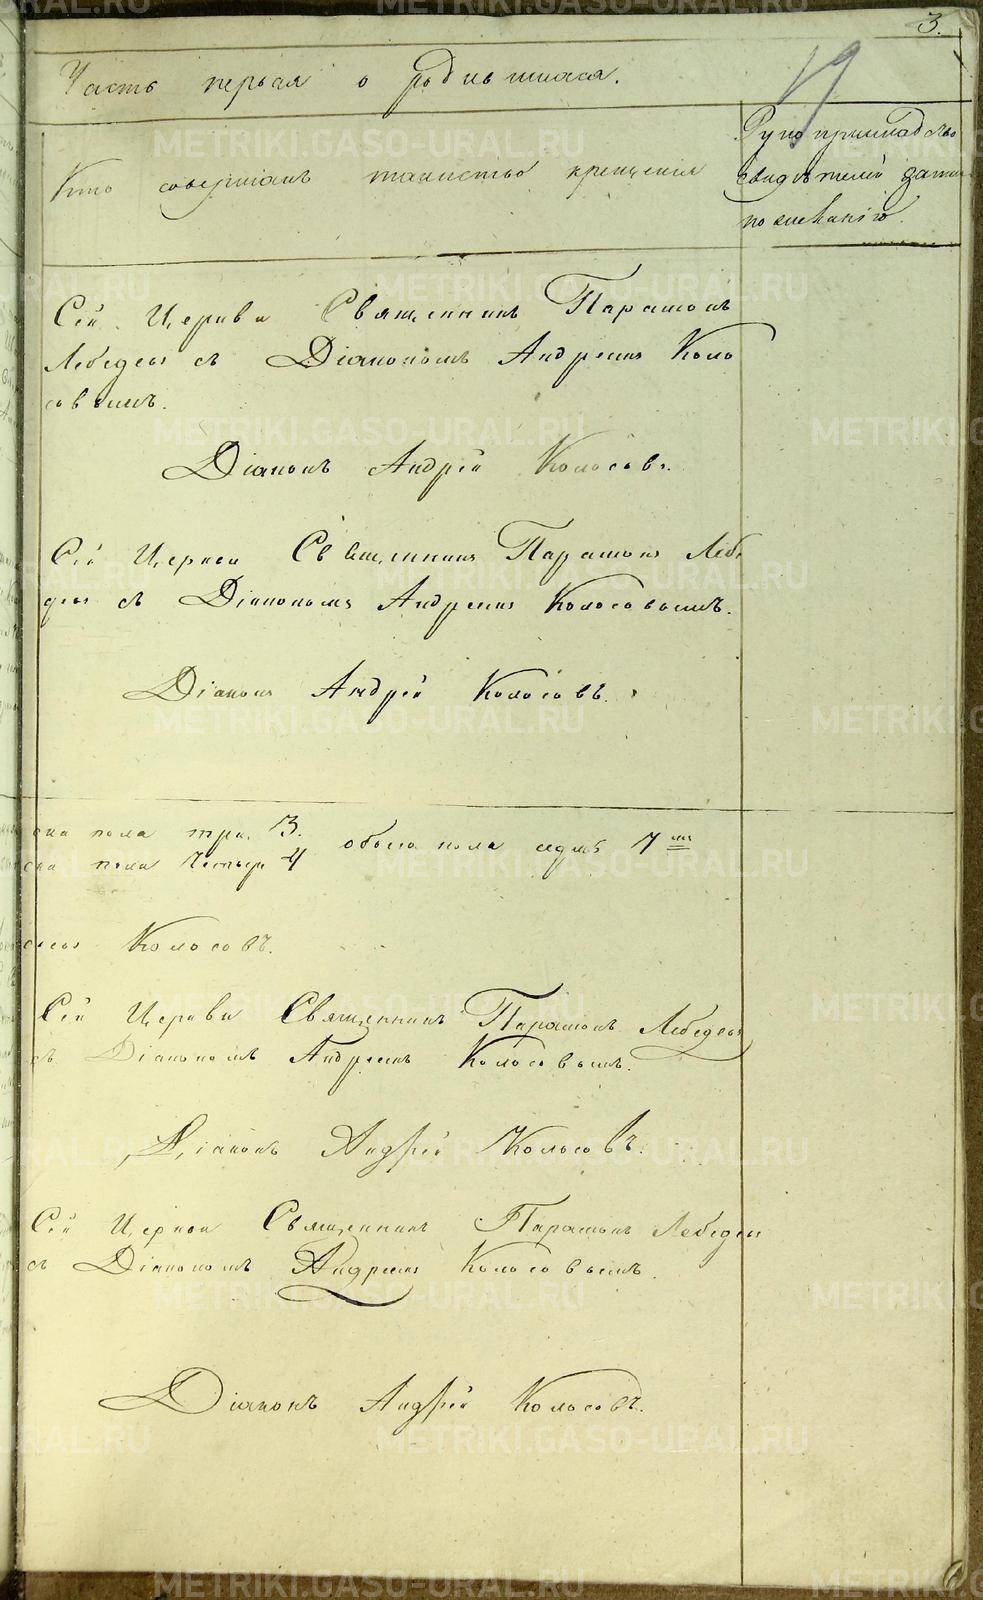 3.
19
Часть первая о родившихся.
Кто совершалъ таинство крещенія
Рукоприкладство
свидѣтелей
по желанію.
Сей Церкви Священникъ Парамонъ
Лебедевъ съ Діакономъ Андреемъ Коло
совымъ.
Діаконъ Андрей Колосовъ.
Сей Церкви Священникъ Парамонъ Лебе
девъ съ Діакономъ Андреемъ Колосовымъ.
Діаконъ Андрей Колосовъ.
ска пола три 3.
ска пола четыре 4
обоего пола седмь 7
Колосовъ.
Сей Церкви Священникъ Парамонъ Лебедевъ
съ Діакономъ Андреемъ Колосовымъ.
Діаконъ Андрей Колосовъ.
Сей Церкви Священникъ Парамонъ Лебедевъ
съ Діакономъ Андреемъ Колосовымъ.
Діаконъ Андрей Колосовъ.
METRIKI.GASO-URAL.RU